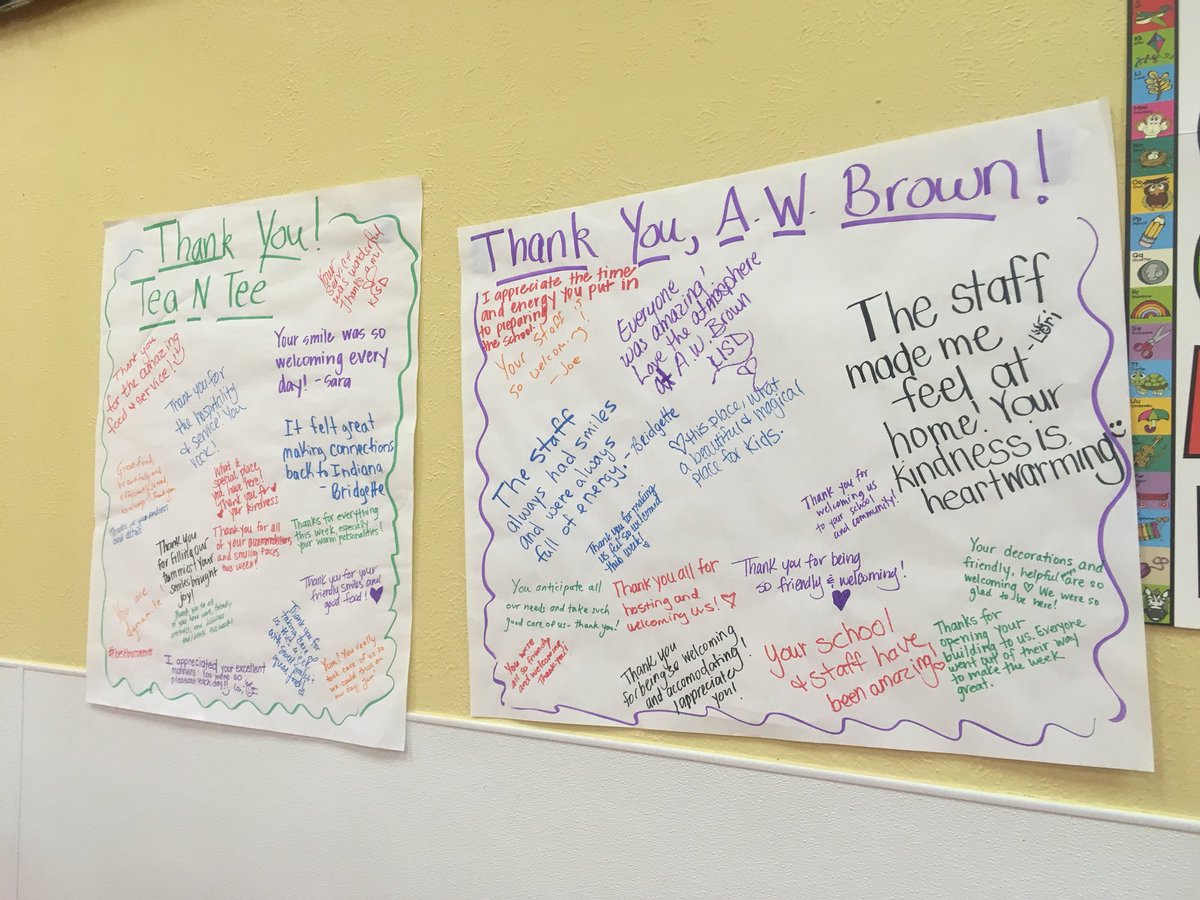 Thank You!
Tea N Tee
Your
Service
was wonderful
Thanks
KISD
Thank you
for the amazing
food & service!
Your smile was so
welcoming every
day! -Sara
Thank you for
the hospitality
& service! You
rock!
It felt great
making connections
back to Indiana
- Bridgette
Great food,
What a
special place
you have here!
Thank you for
your kindness
Thank you
for filling our
tummies! Your
smiles brought
joy!
Thank you for all
of your accommodations
and smiling faces
this week!
Thanks for everything
this week especially
your warm personalities!
You are
dynamite!
Thank you for your
friendly smiles and
good food!
Thank you for
taking care of
#bestbarnever
I appreciated your excellent
manners! You were so
pleasant each day!!
Yum! You really
took care of us so
we could focus on
our day.
Thank You, A.W. Brown!
I appreciate the time
and energy you put in
to preparing
the school.
Your staff
so welcoming!
- Joe
Everyone
was amazing!
Love the atmosphere
at A.W. Brown
KISD
The staff
made me
feel at
home! Your
kindness is
heartwarming
- Lori
The staff
always had smiles
and were always
full of energy. - Bridgette
♡ this place, what
a beautiful & magical
place for kids.
Thank you for making
us feel so welcomed
this week!
Thank you for
welcoming us
to your school
and community!
You anticipate all
our needs and take such
good care of us - thank you!
Thank you all for
hosting and
welcoming us! ♡
Thank you for being
so friendly & welcoming!
Your decorations and
friendly, helpful are so
welcoming ♡ We were so
glad to be here!
You were
all so friendly
and welcoming.
Thank you!
Thank you
for being so welcoming
and accomodating!
I appreciate
you!
Your school
& staff have
been amazing!
Thanks for
opening your
building to us. Everyone
went out of their way
to make the week
great.